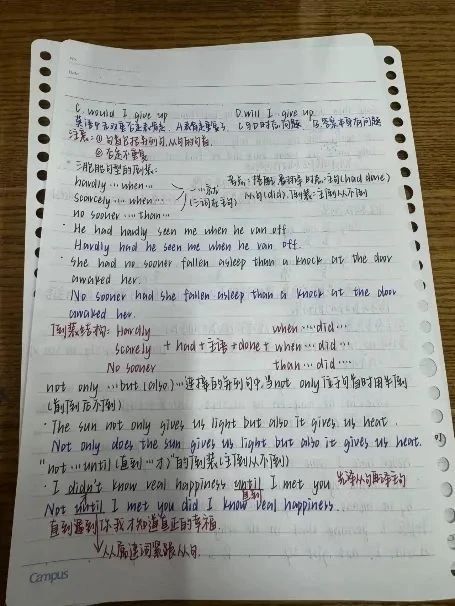 No.
Date
C. would I give up D. will I give up
注意:①句首
②否定不重复
三胞胎句型的倒装:
hardly ... when ...
scarcely ... when ... 一...就
no sooner ... than ...
· He had hardly seen me when he ran off.
Hardly had he seen me when he ran off.
· She had no sooner fallen asleep than a knock at the door
awaked her.
No sooner had she fallen asleep than a knock at the door
awaked her.
倒装结构: Hardly when ... did ...
Scarely + had + 主语 + done + when ... did ...
No sooner than ... did ...
not only ... but (also) ... 连接的并列句中,当not only位于句首时用半倒
(前倒后不倒)
· The sun not only gives us light but also it gives us heat.
Not only does the sun gives us light but also it gives us heat.
"not ... until (直到...才)"的倒装(主倒从不倒)
· I didn't know real happiness until I met you 先译从句再译主句
直到
Not until I met you did I know real happiness.
直到遇到你我才知道真正的幸福.
从属连词紧跟从句.
Campus